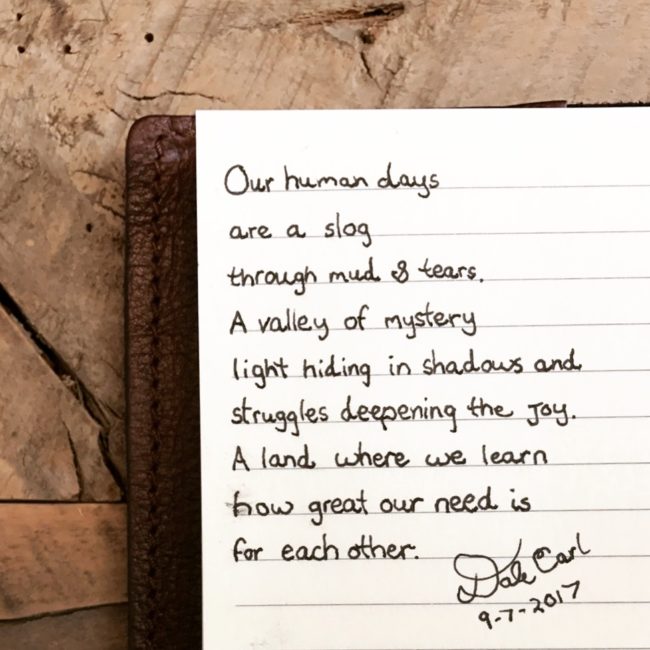 Our human days
are a slog
through mud & tears.
A valley of mystery
light hiding in shadows and
struggles deepening the joy.
A land where we learn
how great our need is
for each other.
Dale Carl
9-7-2017